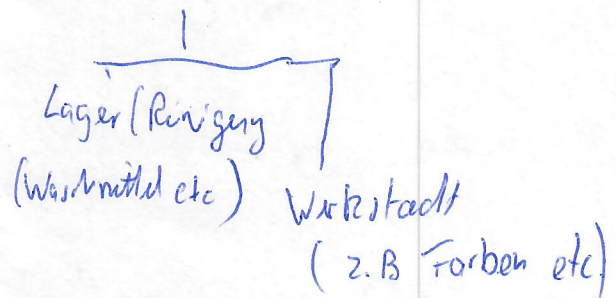 Lager/Reinigung
(Waschmittel etc)
Werkstadt
(z.B Farben etc)